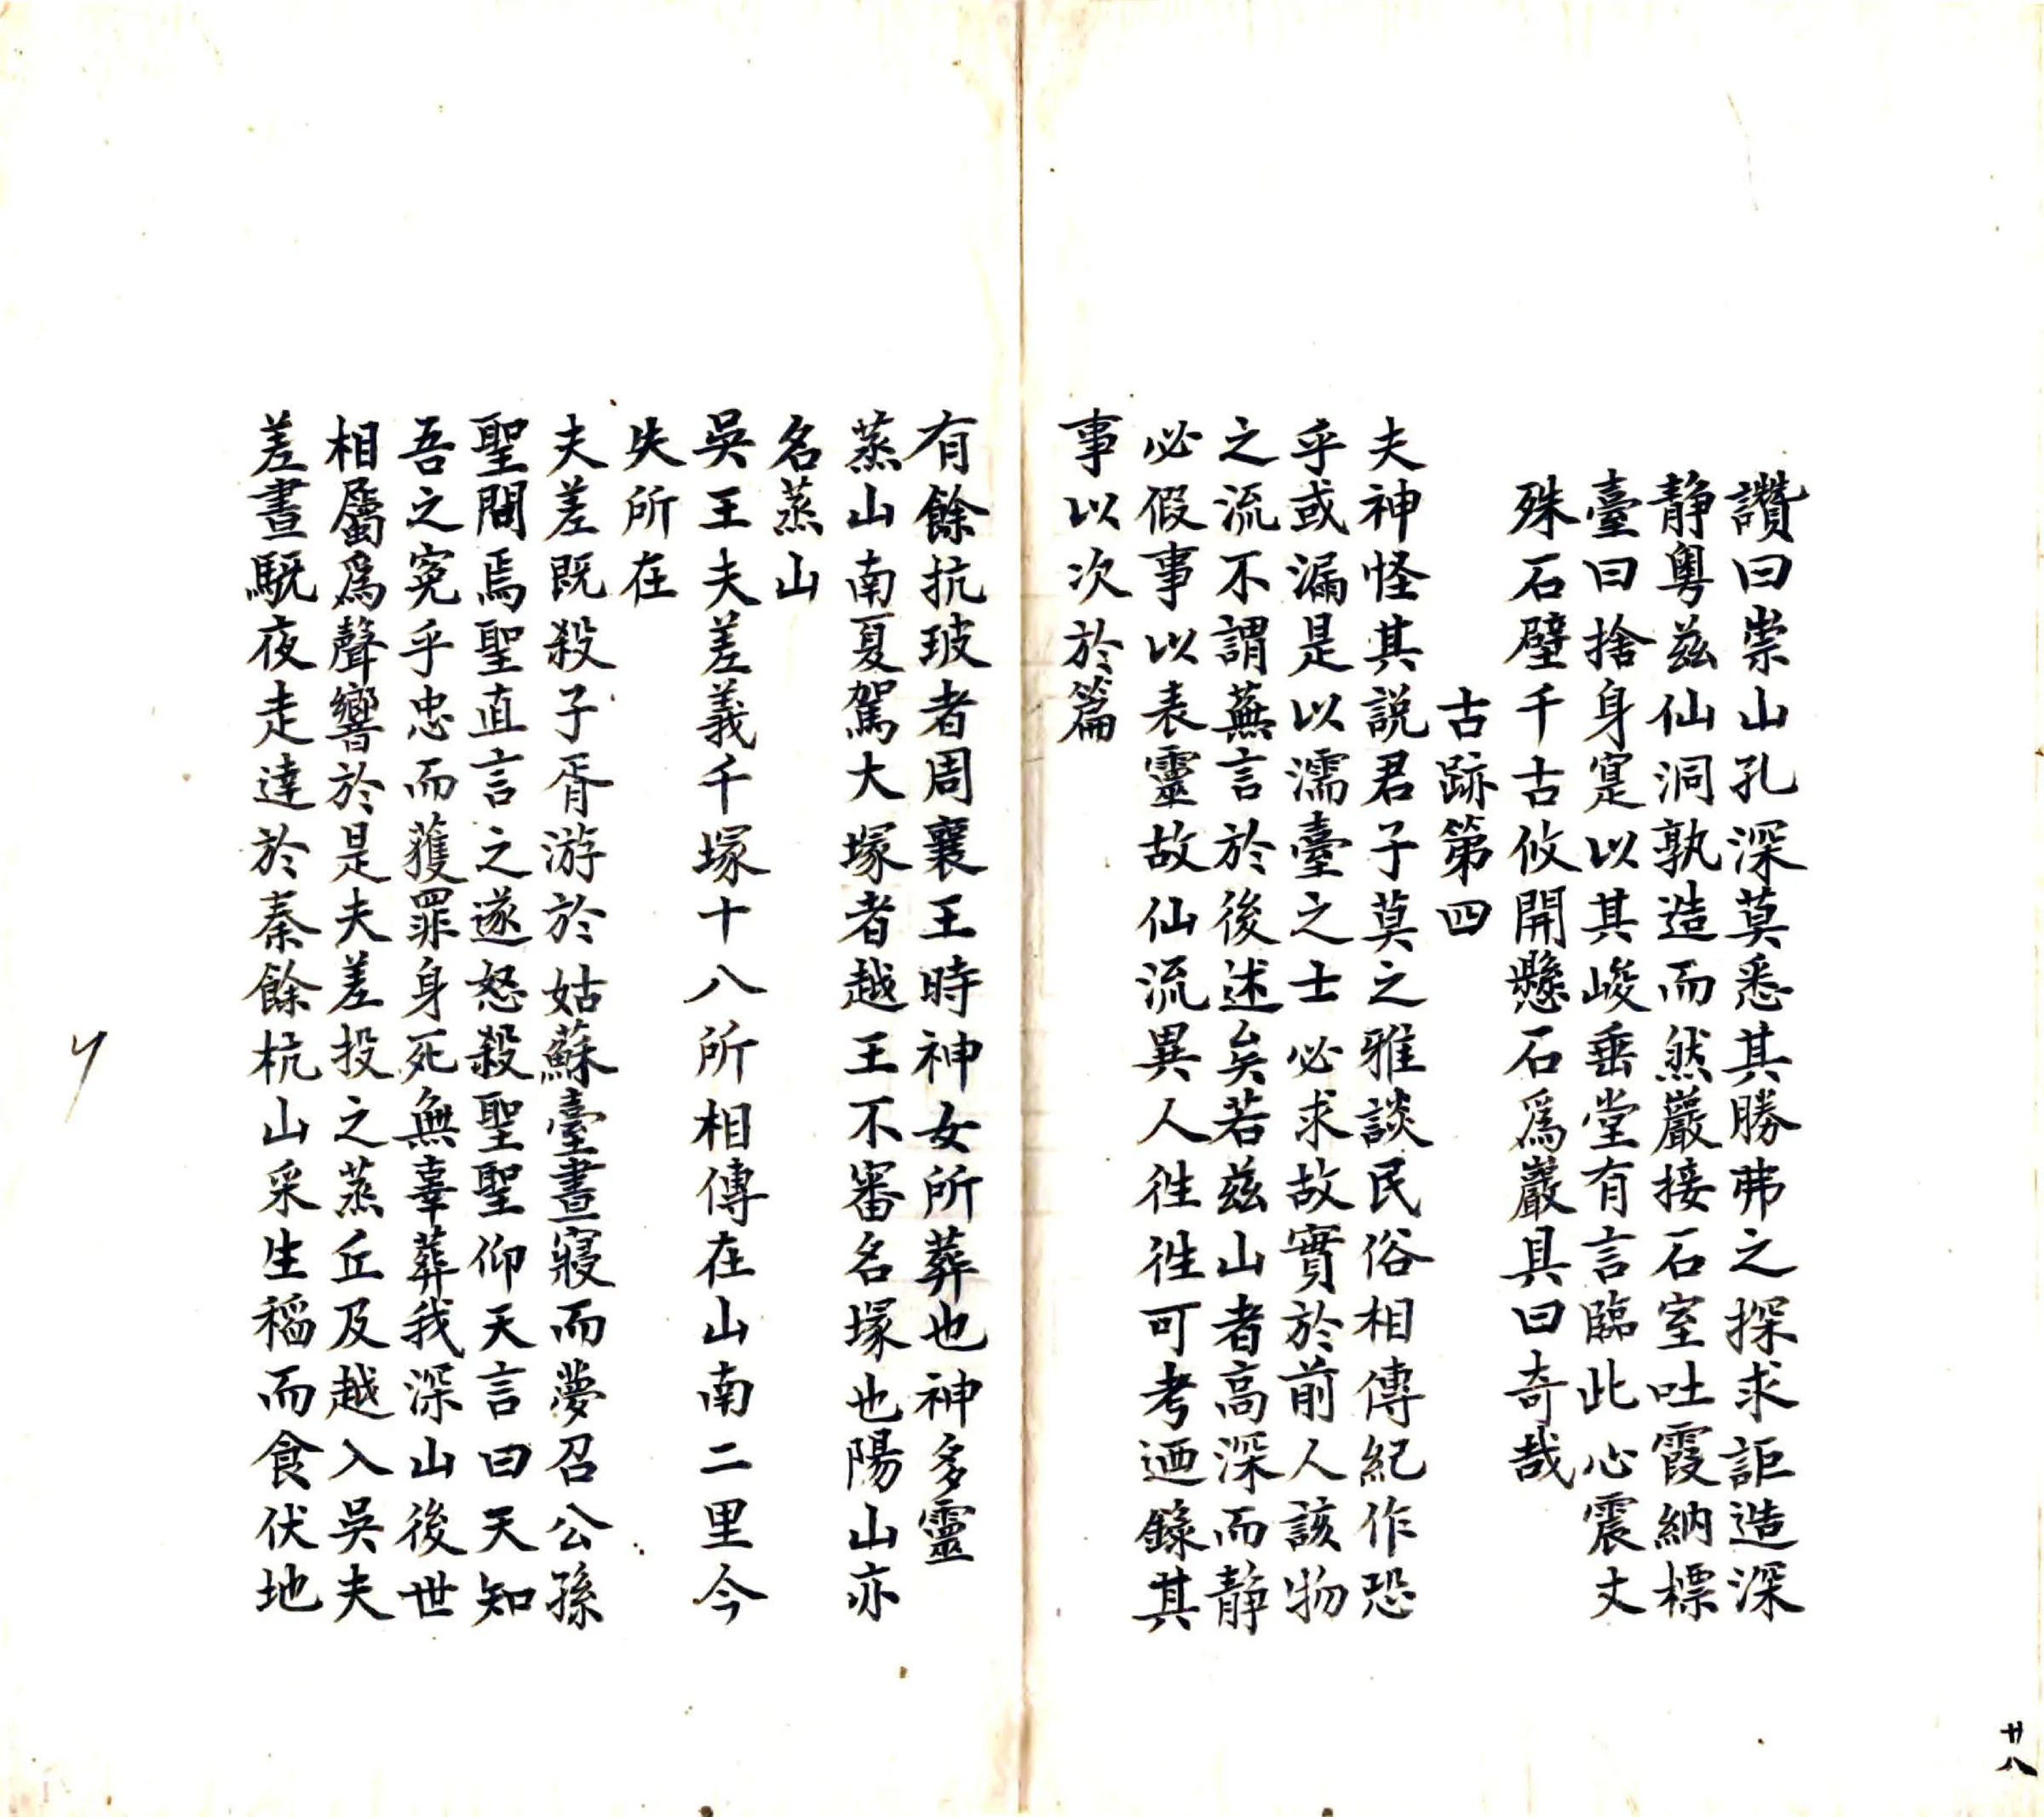 讚曰崇山孔深莫悉其勝弗之探求詎造深
靜粵茲仙洞孰造而然巖接石室吐霞納標
臺曰捨身寔以其峻垂堂有言臨此心震丈
殊石壁千古攸開懸石爲巖具曰奇哉
古跡第四
夫神怪其説君子莫之雅談民俗相傳紀作恐
乎或漏是以濡臺之士必求故實於前人該物
之流不謂蕪言於後述矣若茲山者高深而靜
必假事以表靈故仙流異人徃徃可考迺錄其
事以次於篇
有餘抗玻者周襄王時神女所葬也神多靈
蒸山南夏駕大塚者越王不審名塚也陽山亦
名蒸山
吳王夫差義千塚十八所相傳在山南二里今
失所在
夫差既殺子胥游於姑蘇臺晝寢而夢召公孫
聖問焉聖直言之遂怒殺聖聖仰天言曰天知
吾之寃乎忠而獲罪身死無辜葬我深山後世
相屬爲聲響於是夫差投之蒸丘及越入吳夫
差晝馳夜走達於秦餘杭山采生稻而食伏地
廿八